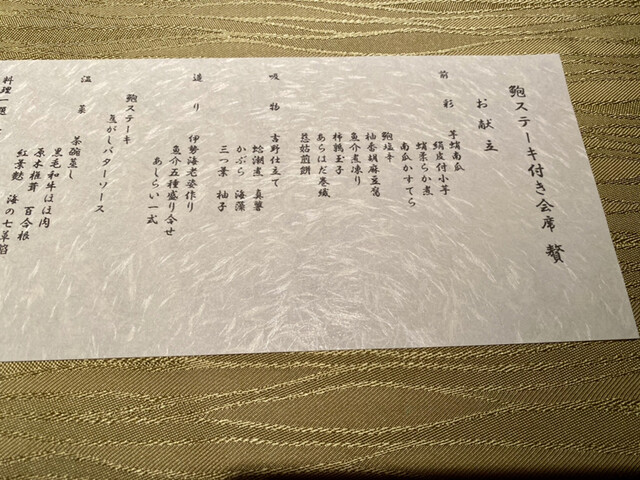 鮑ステーキ付き会席 贅
お献立
前彩
芋蛸南瓜
絹皮付小芋
蛸柔らか煮
南瓜かすてら
鮑塩辛
柚香胡麻豆腐
魚介煮凍り
柿鶉玉子
あらはだ巻繊
慈姑煎餅
吸物
吉野仕立て
蛤潮煮 真薯
かぶら 海藻
三つ葉 柚子
造り
伊勢海老姿作り
魚介五種盛り合せ
あしらい一式
鮑ステーキ
焦がしバターソース
温菜
茶碗蒸し
黒毛和牛ほほ肉
原木椎茸 百合根
紅葉麩 海の七草餡
料理一題